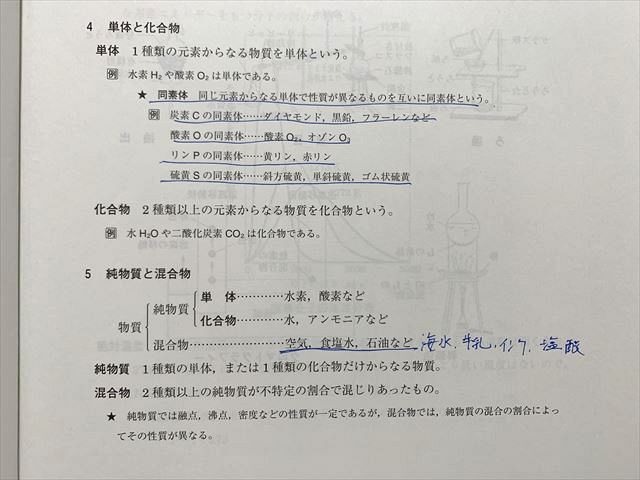 4 単体と化合物
単体 1種類の元素からなる物質を単体という。
例 水素 H₂ や酸素 O₂ は単体である。
★ 同素体 同じ元素からなる単体で性質が異なるものを互いに同素体という。
例 炭素 C の同素体……ダイヤモンド，黒鉛，フラーレンなど
酸素 O の同素体……酸素 O₂，オゾン O₃
リン P の同素体……黄リン，赤リン
硫黄 S の同素体……斜方硫黄，単斜硫黄，ゴム状硫黄
化合物 2種類以上の元素からなる物質を化合物という。
例 水 H₂O や二酸化炭素 CO₂ は化合物である。
5 純物質と混合物
単 体…………水素，酸素など
純物質
化合物…………水，アンモニアなど
物質
混合物………………空気，食塩水，石油など 海水，牛乳，インク，塩酸
純物質 1種類の単体，または1種類の化合物だけからなる物質。
混合物 2種類以上の純物質が不特定の割合で混じりあったもの。
★ 純物質では融点，沸点，密度などの性質が一定であるが，混合物では，純物質の混合の割合によっ
てその性質が異なる。